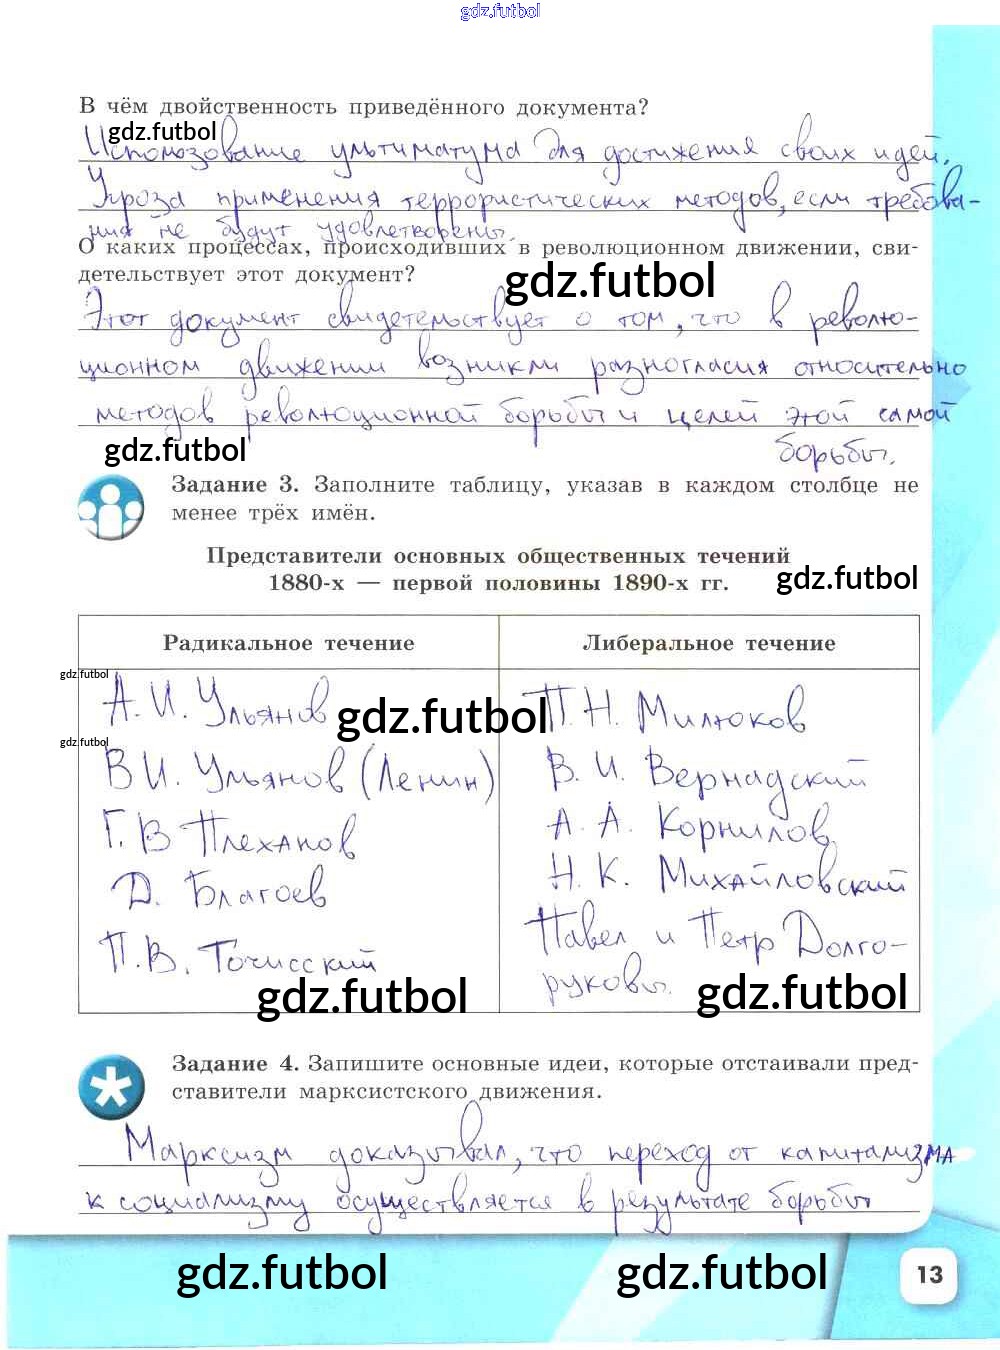 gdz.futbol
В чём двойственность приведённого документа?
gdz.futbol
Использование ультиматума для достижения своих идей.
Угроза применения террористических методов, если требова-
ния не будут удовлетворены.
О каких процессах, происходивших в революционном движении, сви-
детельствует этот документ?
gdz.futbol
Этот документ свидетельствует о том, что в револю-
ционном движении возникли разногласия относительно
методов революционной борьбы и целей этой самой
борьбы.
gdz.futbol
Задание 3. Заполните таблицу, указав в каждом столбце не
менее трёх имён.
Представители основных общественных течений
1880-х — первой половины 1890-х гг.
gdz.futbol
Радикальное течение
Либеральное течение
gdz.futbol
А. И. Ульянов
gdz.futbol
П. Н. Милюков
gdz.futbol
В И. Ульянов (Ленин)
В. И. Вернадский
Г. В Плеханов
А. А. Корнилов
Д. Благоев
Н. К. Михайловский
П. В. Точисский
Павел и Петр Долго-
руковы.
gdz.futbol
gdz.futbol
Задание 4. Запишите основные идеи, которые отстаивали пред-
ставители марксистского движения.
Марксизм доказывал, что переход от капитализма
к социализму осуществляется в результате борьбы
gdz.futbol
gdz.futbol
13